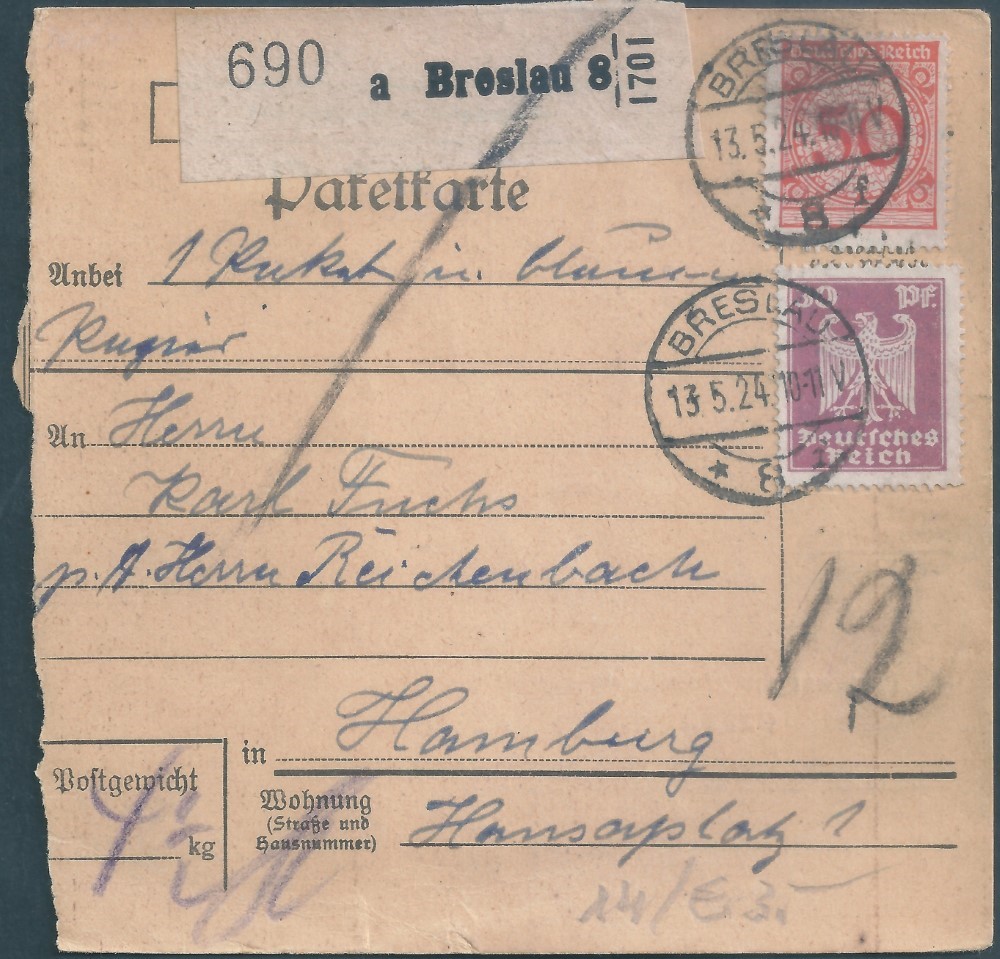 690 a Breslau 8
1701
Deutsches Reich
50
BRESLAU
13.5.24.
* 8 f
Paketkarte
Anbei 1 Paket in blauem
Papier
30 Pf.
Deutsches
Reich
BRESLAU
13.5.24. 10-11 V
* 8
An Herrn
Karl Fuchs
p. A. Herrn Reichenbach
12
in Hamburg
Postgewicht
kg
Wohnung
(Straße und
Hausnummer)
Hansaplatz 1